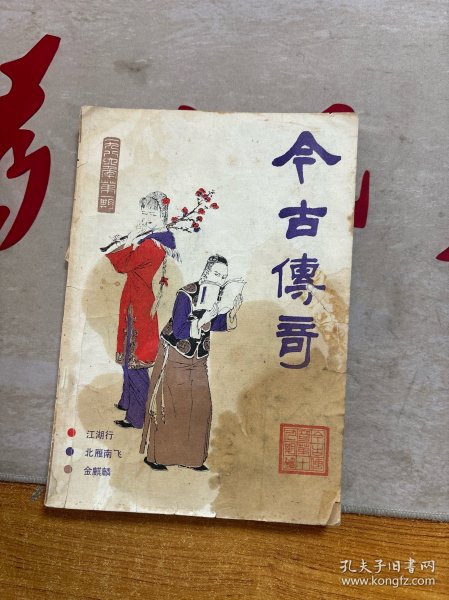 今古傳奇
江湖行
北雁南飞
金麒麟
孔夫子旧书网
www.kongfz.com